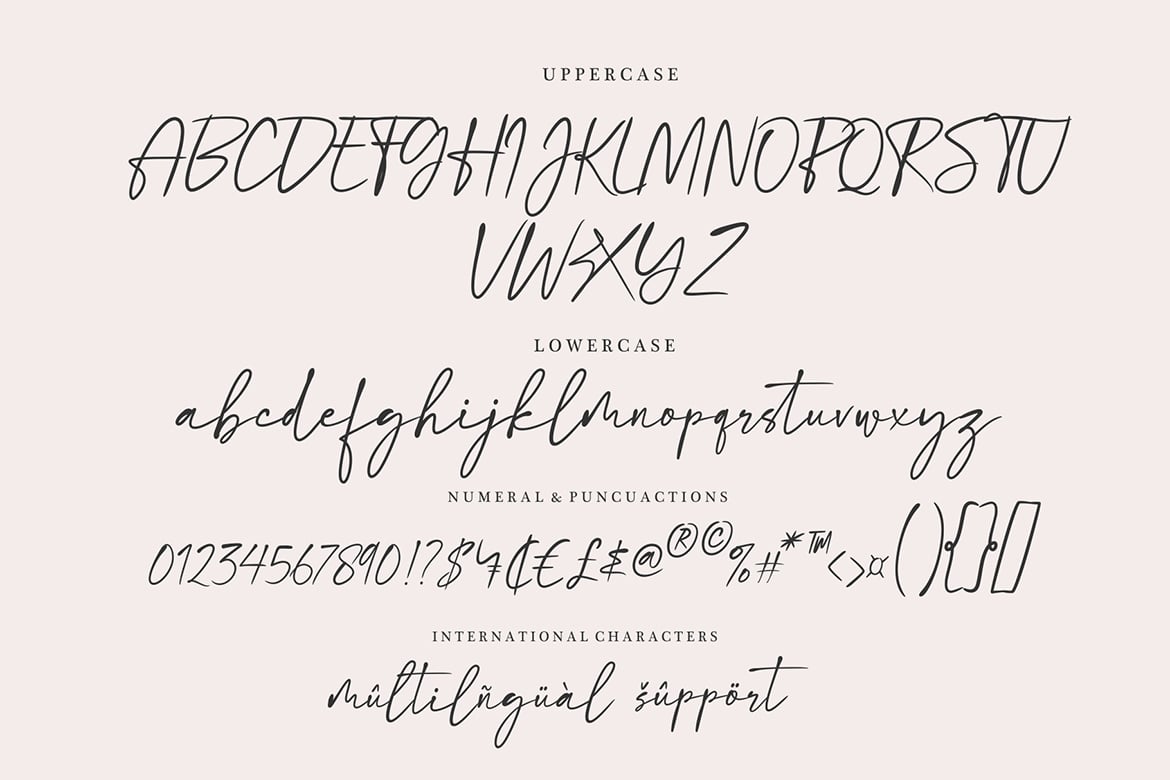 UPPERCASE
ABCDEFGHIJKLMNOPQRSTU
VWXYZ
LOWERCASE
abcdefghijklmnopqrstuvwxyz
NUMERAL & PUNCUACTIONS
01234567890!?$¢€£@®©%#*™<>¤(){}[]
INTERNATIONAL CHARACTERS
mûltilñgüàl šûppört